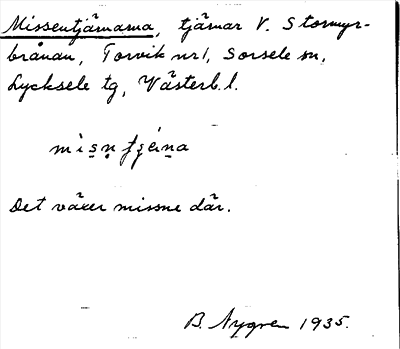 Missentjärnarna, tjärnar V. Stormyr-
brånan, Torvik nr 1, Sorsele sn,
Lycksele tg, Västerb. l.
Det växer missne där.
B. Nygren 1935.